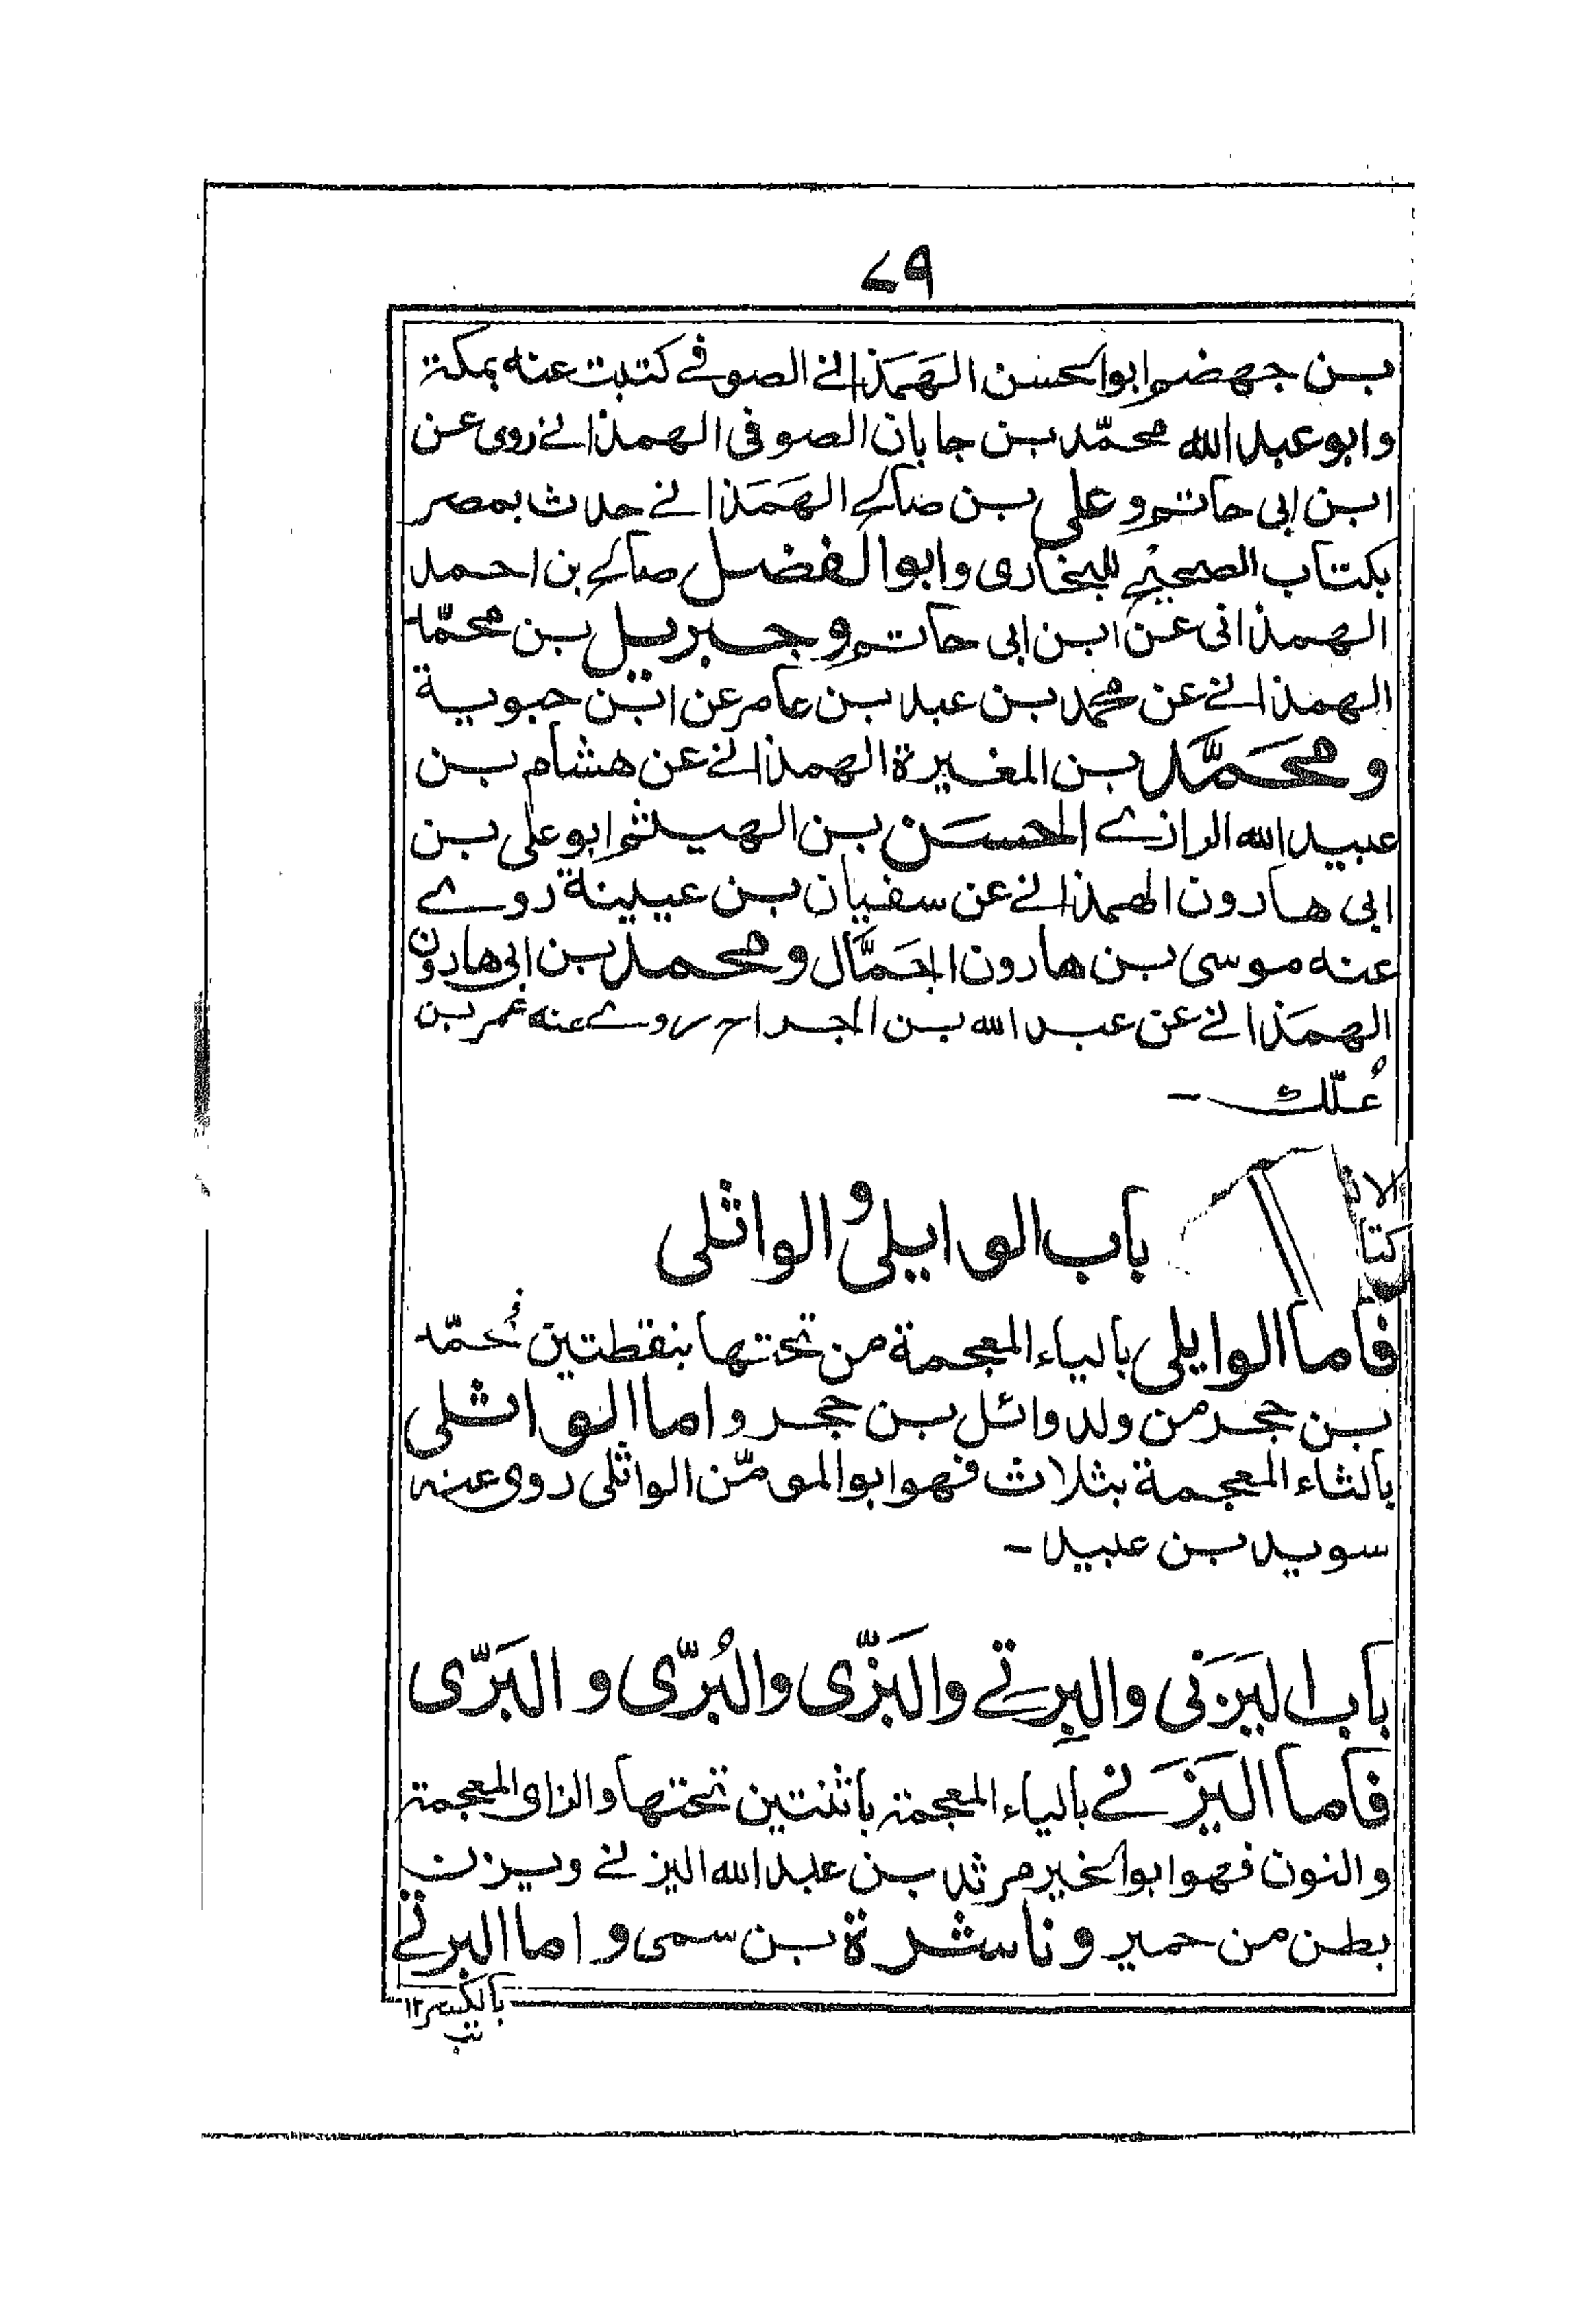 ٧٩
بن جهضم ابوالحسن الهَمَذانے الصوفے كتبت عنه بمكة
وابو عبد الله محمّد بن جابان الصوفى الهمذانے روى عن
ابن ابى حاتم وعلى بن صالح الهَمَذانے حدث بمصر
بكتاب الصحيح للبخارى وابوالفضل صالح بن احمد
الهمذانى عن ابن ابى حاتم وجبريل بن محمّد
الهمذانے عن محمد بن عبد بن عامر عن ابن حبوية
ومحَمَّد بن المغيرة الهمذانے عن هشام بن
عبيد الله الرازے الحسَن بن الهيثم ابو على بن
ابى هارون الهمذانے عن سفيان بن عيينة روے
عنه موسى بن هارون الحَمَّال ومحمد بن ابى هارون
الهمَذانے عن عبد الله بن الجراح روے عنه عمر بن
عُلّك -
باب الوايلى والواثلى
فاما الوايلى بالياء المعجمة من تحتها بنقطتين فمُحمّد
بن حجر من ولد وائل بن حجر واما الواثلى
بالثاء المعجمة بثلاث فهو ابو المومّن الواثلى روى عنه
سويد بن عبيد -
باب اليَزَنى والبِرتے والبَزّى والبُرّى و البَرّى
فاما اليَزَنے بالياء المعجمة باثنتين تحتها والزاى المعجمة
والنون فهو ابوالخير مرثد بن عبد الله اليزنے ويزن
بطن من حمير وناشرة بن سمى واما البرتے
بالكسر ١٢